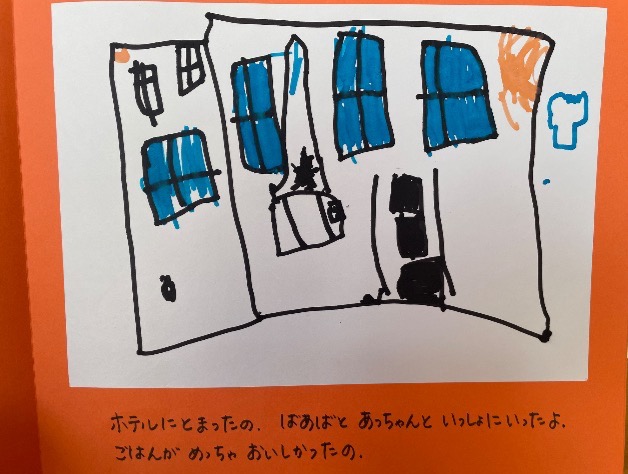 ホテルにとまったの. ばあばと あっちゃんと いっしょにいったよ.
ごはんが めっちゃ おいしかったの.